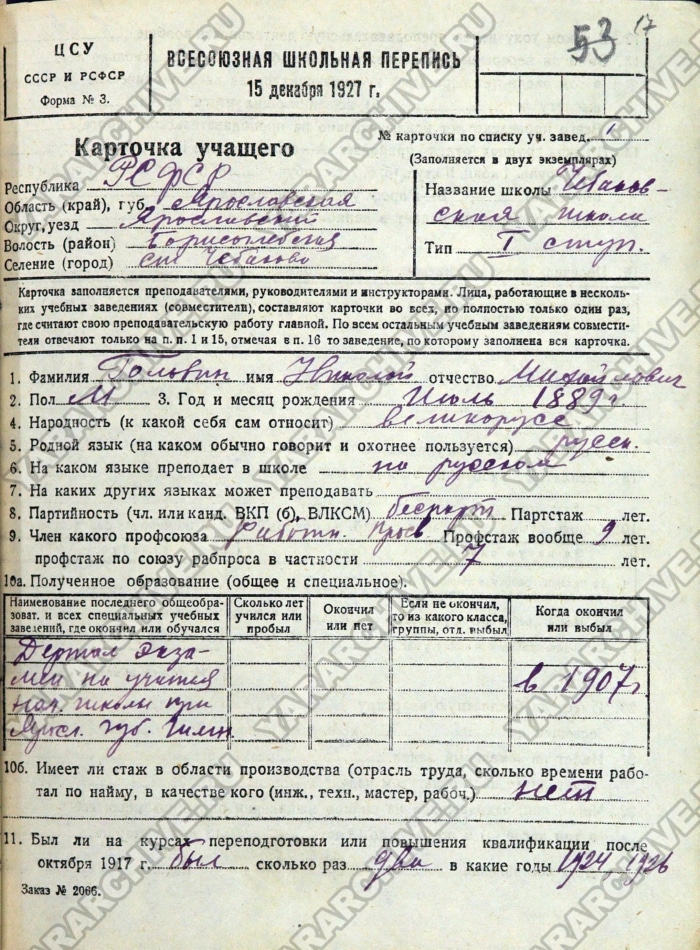 53 17
ЦСУ
СССР и РСФСР
Форма № 3.
ВСЕСОЮЗНАЯ ШКОЛЬНАЯ ПЕРЕПИСЬ
15 декабря 1927 г.
Карточка учащего
№ карточки по списку уч. завед. 1
(Заполняется в двух экземплярах)
Республика РСФСР
Область (край), губ. Ярославская
Округ, уезд Ярославский
Волость (район) Борисоглебская
Селение (город) Чебаково
Название школы Чебаков-
ская школа
Тип I ступ.
Карточка заполняется преподавателями, руководителями и инструкторами. Лица, работающие в несколь-
ких учебных заведениях (совместители), составляют карточки во всех, но полностью только один раз,
где считают свою преподавательскую работу главной. По всем остальным учебным заведениям совмести-
тели отвечают только на п. п. 1 и 15, отмечая в п. 16 то заведение, по которому заполнена вся карточка.
1. Фамилия Головин имя Николай отчество Михайлович
2. Пол М. 3. Год и месяц рождения Июль 1889 г.
4. Народность (к какой себя сам относит) великорусс
5. Родной язык (на каком обычно говорит и охотнее пользуется) русск.
6. На каком языке преподает в школе на русском
7. На каких других языках может преподавать
8. Партийность (чл. или канд. ВКП (б), ВЛКСМ) беспарт. Партстаж лет.
9. Член какого профсоюза Работн. Прос Профстаж вообще 9 лет.
профстаж по союзу рабпроса в частности 7 лет.
10а. Полученное образование (общее и специальное).
Наименование последнего общеобра-
зоват. и всех специальных учебных
заведений, где окончил или обучался
Сколько лет
учился или
пробыл
Окончил
или нет
Если не окончил,
то из какого класса,
группы, отд. выбыл
Когда окончил
или выбыл
Держал экза-
мен на учителя
нач. школы при
Яросл. губ. Гимн.
в 1907 г.
10б. Имеет ли стаж в области производства (отрасль труда, сколько времени рабо-
тал по найму, в качестве кого (инж., техн., мастер, рабоч.) нет
11. Был ли на курсах переподготовки или повышения квалификации после
октября 1917 г. был сколько раз два в какие годы 1924, 1926
Заказ № 2066.
YARARCHIVE.RU